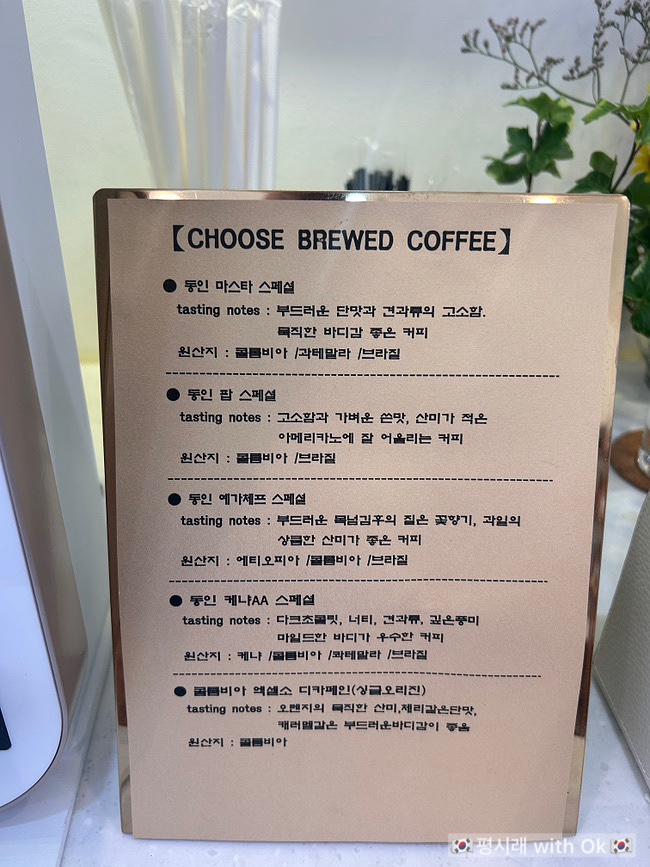 【CHOOSE BREWED COFFEE】
● 동인 마스타 스페셜
tasting notes : 부드러운 단맛과 견과류의 고소함.
묵직한 바디감 좋은 커피
원산지 : 콜롬비아 /과테말라 /브라질
● 동인 팝 스페셜
tasting notes : 고소함과 가벼운 쓴맛, 산미가 적은
아메리카노에 잘 어울리는 커피
원산지 : 콜롬비아 /브라질
● 동인 예가체프 스페셜
tasting notes : 부드러운 목넘김후의 짙은 꽃향기, 과일의
상큼한 산미가 좋은 커피
원산지 : 에티오피아 /콜롬비아 /브라질
● 동인 케냐AA 스페셜
tasting notes : 다크초콜릿, 너티, 견과류, 깊은풍미
마일드한 바디가 우수한 커피
원산지 : 케냐 /콜롬비아 /콰테말라 /브라질
● 콜롬비아 엑셀소 디카페인(싱글오리진)
tasting notes : 오렌지의 묵직한 산미,체리같은단맛,
캐러멜같은 부드러운바디감이 좋음
원산지 : 콜롬비아
🇰🇷평시래 with Ok🇰🇷